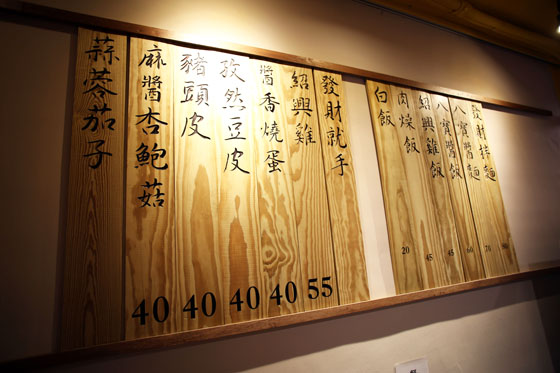 蒜蓉茄子
麻醬杏鮑菇 40
豬頭皮 40
孜然豆皮 40
醬香燒蛋 40
紹興雞 55
發財就手
白飯 20
肉燥飯 45
紹興雞飯 45
八寶醬飯 60
八寶醬麵
發財拌麵